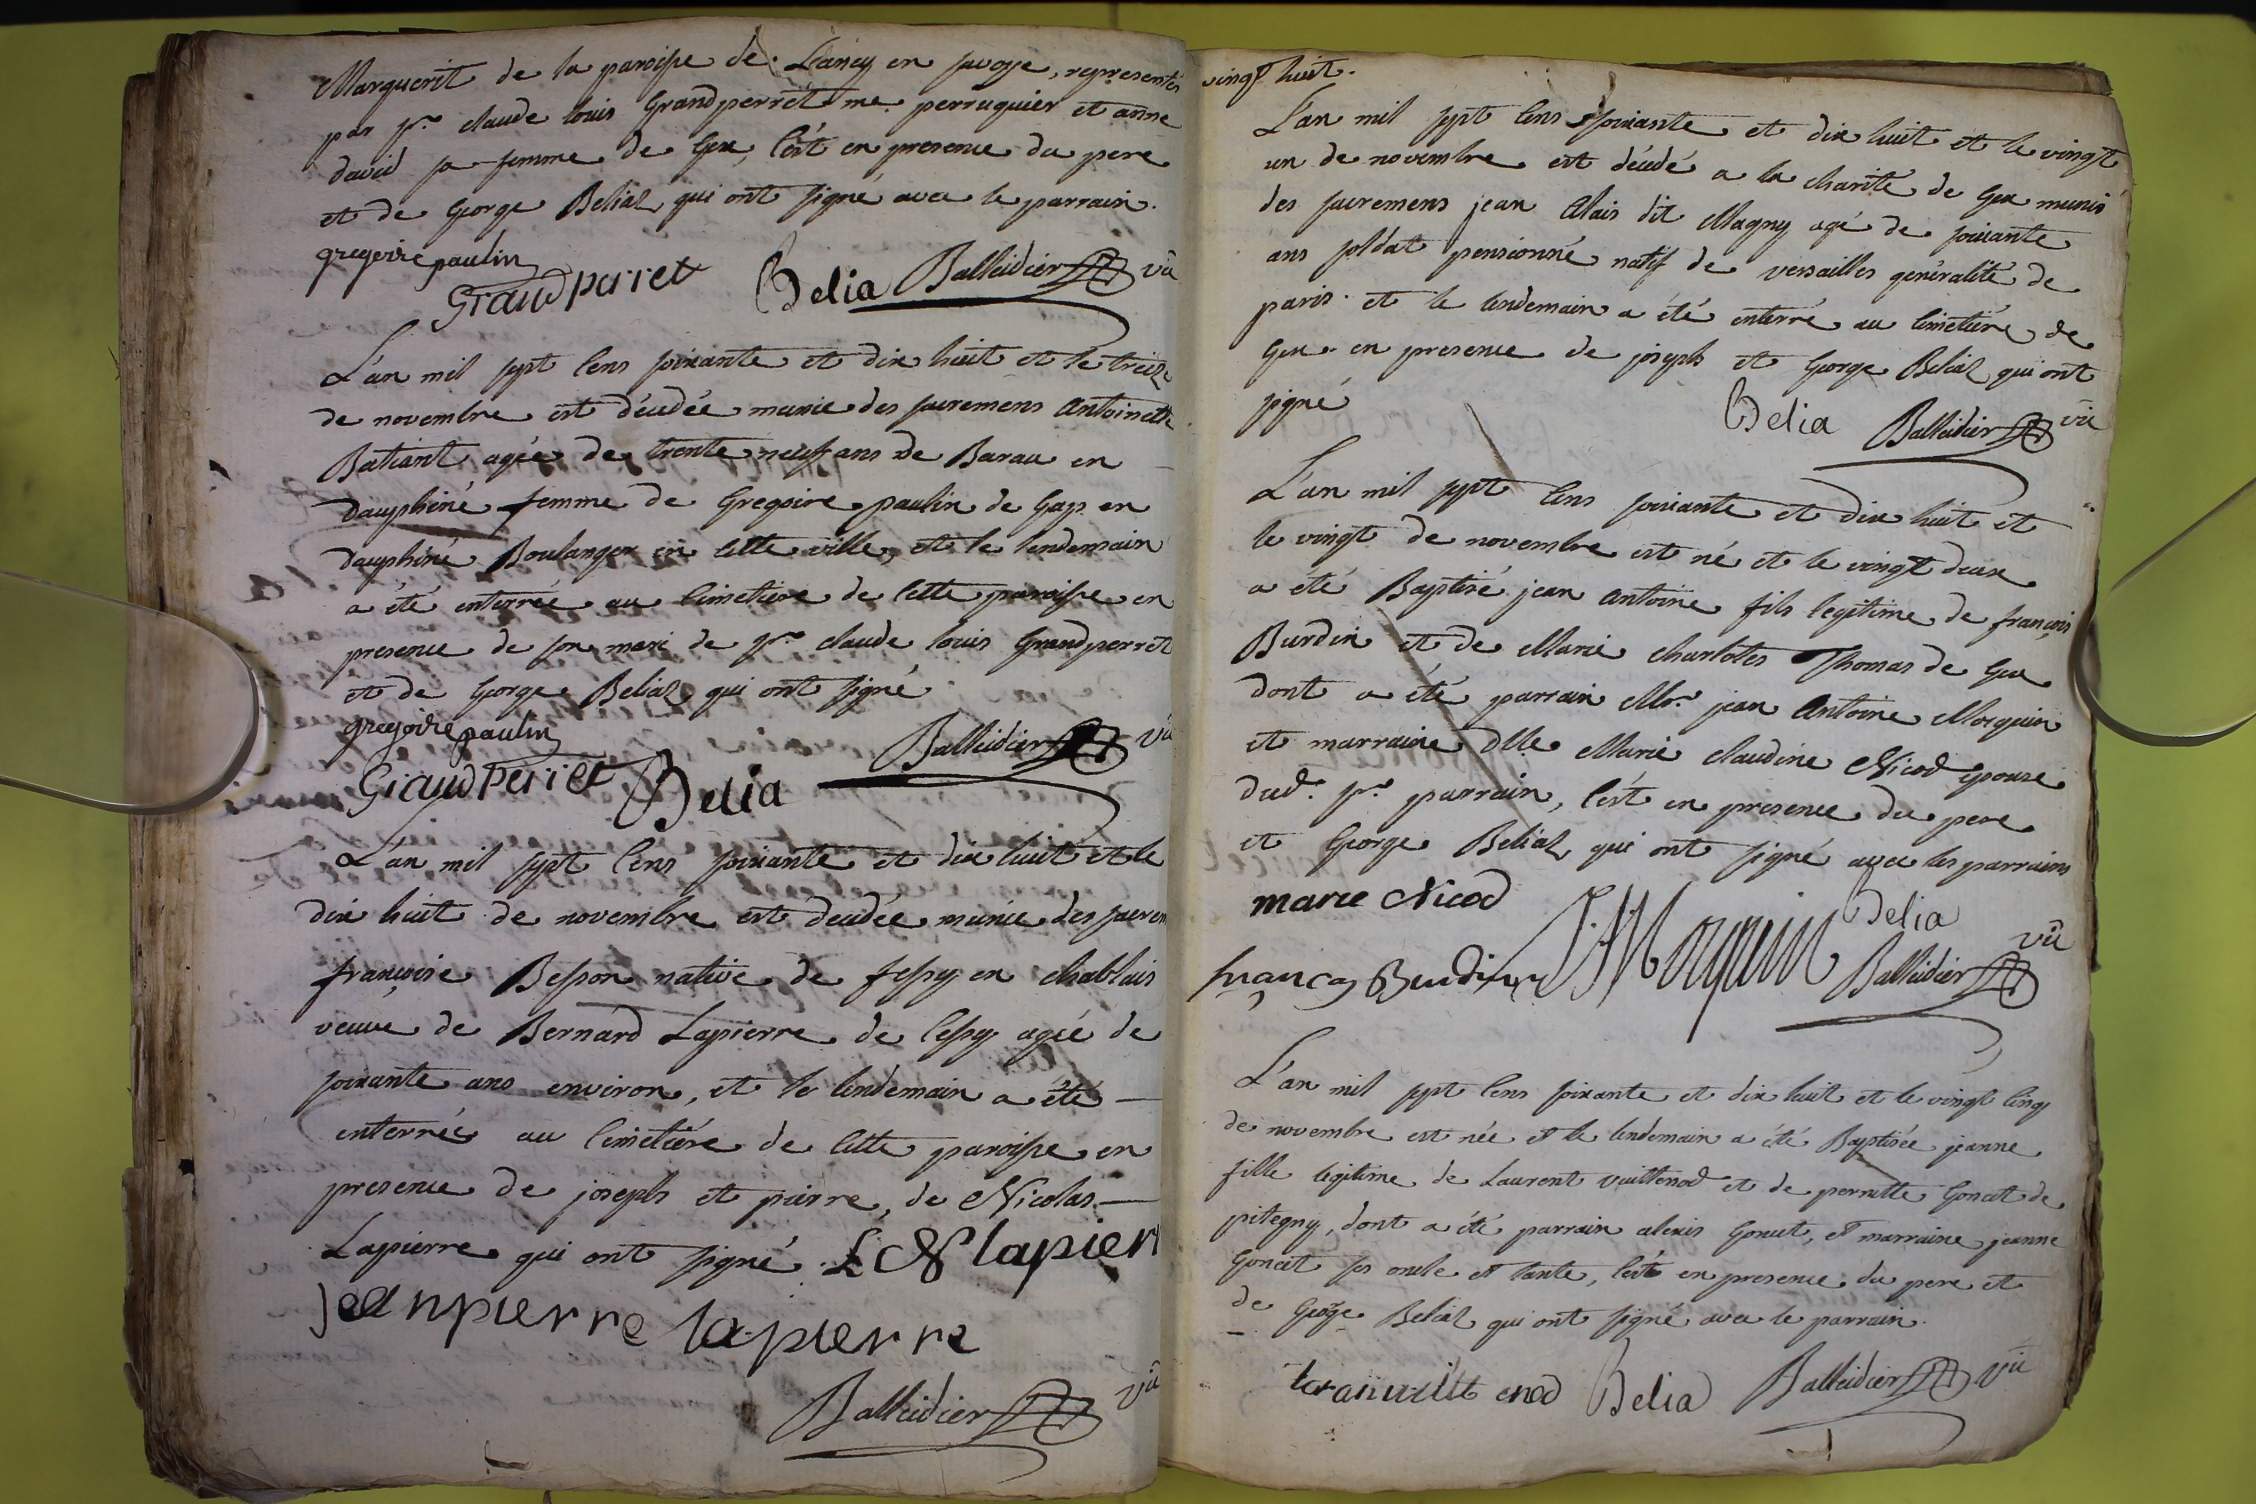 Marguerit de la paroisse de Lancy en savoye, representés
par sr. claude louis Grandperret me. perruquier et anne
david sa femme de Gex, c'est en presence du pere
et de George Beliaz qui ont signé avec le parrain.
gregoire paulin
Grandperret Belia Balleidier vic
L'an mil sept cens soixante et dix huit et le treize
de novembre est décedée munie des sacremens Antoinette
Batiant agée de trente neuf ans de Barau en
dauphiné femme de Gregoire paulin de Gap en
dauphiné Boulanger en cette ville, et le lendemain
a été enterrée au cimetiere de cette paroisse en
presence de son mari de sr. claude louis Grandperret
et de George Beliaz qui ont signé
gregoire paulin
Grandperret Belia Balleidier vic
L'an mil sept cens soixante et dix huit et le
dix huit de novembre est décedée munie des sacrem
françoise Besson native de fessy en chablais
veuve de Bernard Lapierre de cessy agée de
soixante ans environ, et le lendemain a été
enterrée au cimetière de cette paroisse en
presence de joseph et pierre, de Nicolas
Lapierre qui ont signé. lapierr
jeanpierre lapierre
Balleidier vic
vingt huit.
L'an mil sept cens soixante et dix huit et le vingt
un de novembre est décedé a la charité de Gex muni
des sacremens jean Alais dit Magny agé de soixante
ans soldat pensionné natif de versailles generalité de
paris. et le lendemain a été enterré au cimetière de
Gex en presence de joseph et George Beliaz qui ont
signé
Belia Balleidier vic
L'an mil sept cens soixante et dix huit et
le vingt de novembre est né et le vingt deux
a été Baptisé jean Antoine fils legitime de françois
Burdin et de Marie charlotes Thomas de Gex
dont a été parrain Mr. jean Antoine Morquin
et marraine dlle Marie claudine Nicod epouse
dud. sr. parrain, c'est en presence du pere
et George Beliaz qui ont signé avec les parrains
marie Nicod Belia
françoy Burdin J. A Morquin Balleidier vic
L'an mil sept cens soixante et dix huit et le vingt cinq
de novembre est née et le lendemain a été Baptisée jeanne
fille legitime de Laurent vuittenod et de pernette Goncet de
pitegny, dont a été parrain alexis Goncet, et marraine jeanne
Goncet ses oncle et tante, c'est en presence du pere et
de George Beliaz qui ont signé avec le parrain.
loran vuilt enod Belia Balleidier vic